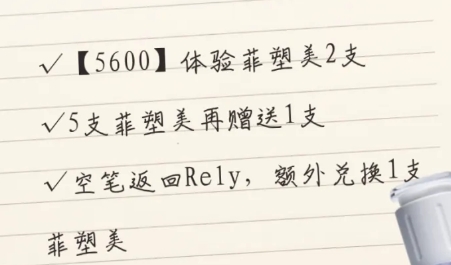 ✓【5600】体验菲塑美2支
✓5支菲塑美再赠送1支
✓空笔返回Rely，额外兑换1支
菲塑美